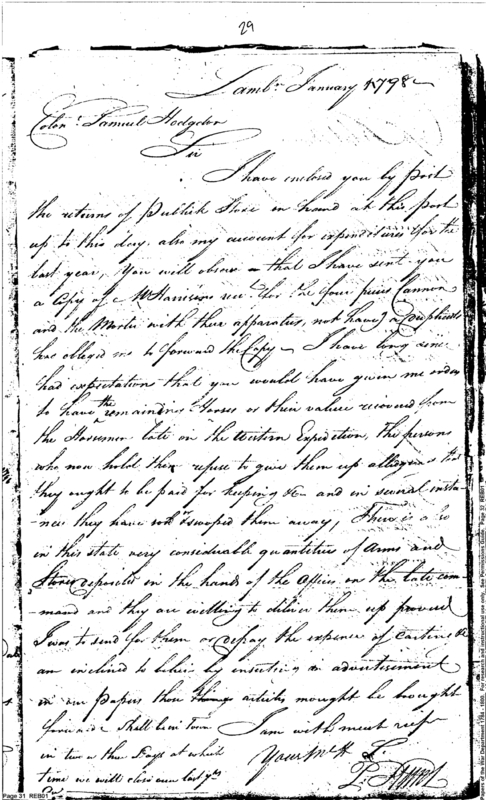 29
Lamb.n January 1798
Colon.l Samuel Hodgdon
Sir
I have enclosed you by post
the returns of Publick Store on hand at this post
up to this day. also my account for expenditures for the
last year, You will observe that I have sent you
a Copy of Harrisons rec.t for the four peices Cannon
and the Morter with their apparatus, not having a Duplicate
has obleged me to forward the Copy I have long since
had expectations that you would have given me orders
to have the remaining Horses or their value recovered from
the Horsemen late on the Western Expedition, The persons
who now hold them refuse to give them up alledgeing that
they ought to be paid for keeping &c and in several insta-
nces they have swoped them away, There is also
in this state very considerable quantities of Arms and
Stores deposited in the hands of the Officers on the late com-
mand and they are willing to deliver them up provided
I was to send for them or defray the expence of Carting &c
am inclined to beleive by inserting an advertisement
in our papers those things articles mought be brought
forward Shall be in Town I am with much resp.t
in two or three Days at which Your
time we will close our last
Page 31 REB01